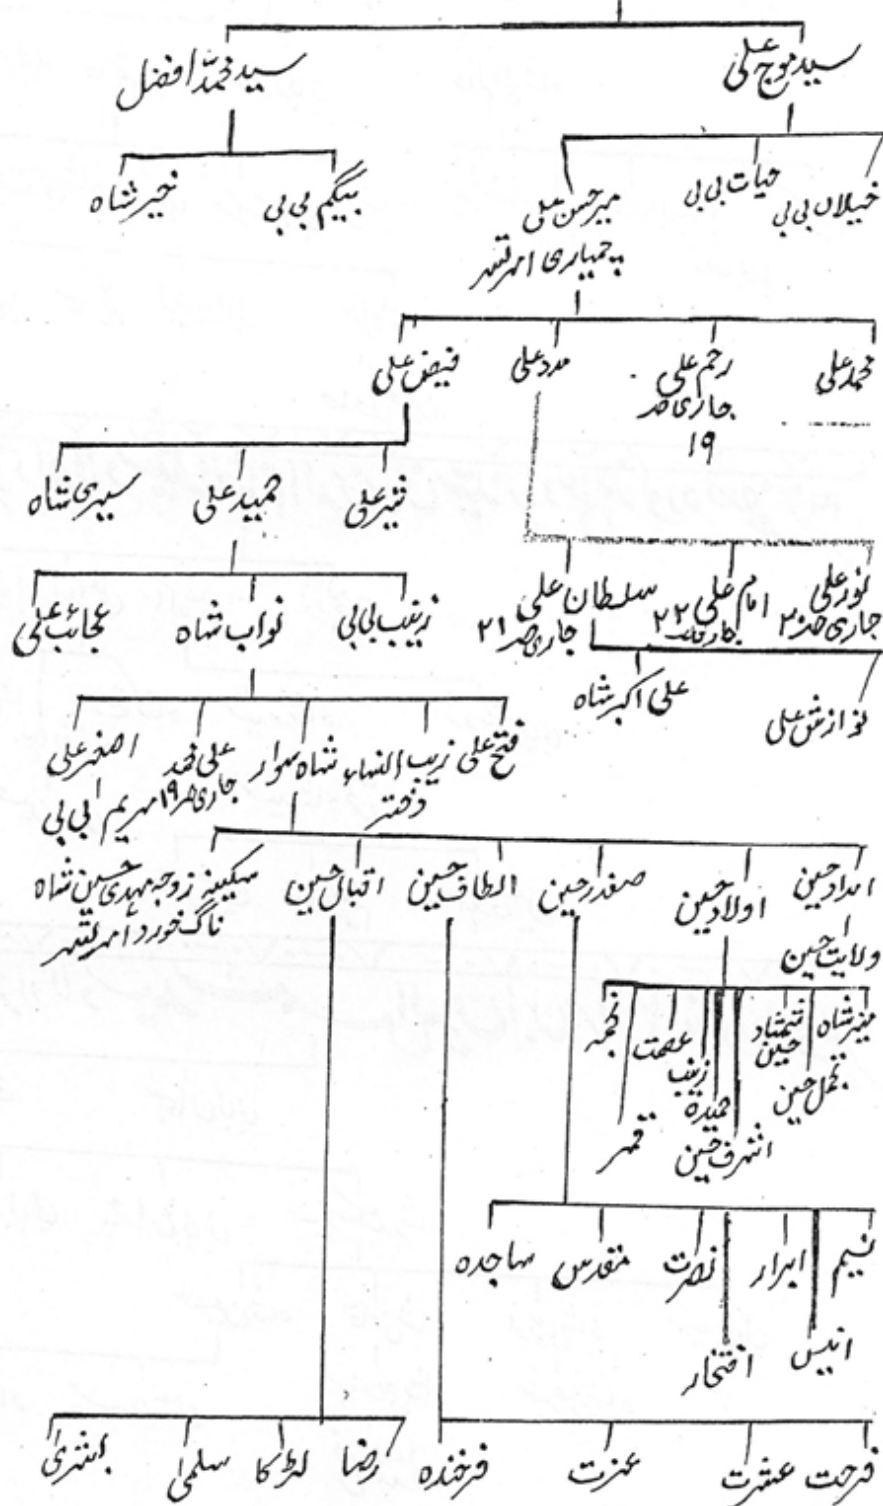 سید موج علی
سید محمد افضل
خیلاں بی بی
حیات بی بی
میر حسن علی
چمیاری امرتسر
بیگم بی بی
خیر شاہ
محمد علی
رحم علی
جاری صد
۱۹
مدد علی
فیض علی
حمید علی
سیری شاہ
نور علی
جاری صد ۲۰
امام علی
۲۲
سلطان علی
جاری صد ۲۱
زینب بی بی
نواب شاہ
عجائب علی
نوازش علی
علی اکبر شاہ
فتح علی
زیب النساء
دختر
شاہ سوار
علی محمد
جاری صد ۱۹
اصغر علی
مریم بی بی
امداد حسین
ولایت حسین
اولاد حسین
صفدر حسین
الطاف حسین
اقبال حسین
سکینہ زوجہ مہدی حسین شاہ
ناگ خورد امرتسر
منیر شاہ
تجمل حسین
شمشاد
حسین
اشرف حسین
حمیدہ
زینب
عصمت
قمر
نجمہ
نسیم
انیس
ابرار
افتخار
نصرت
مقدس
ساجدہ
فرحت
عشرت
عزت
فرخندہ
رضا
لڑکا
سلمیٰ
بشریٰ